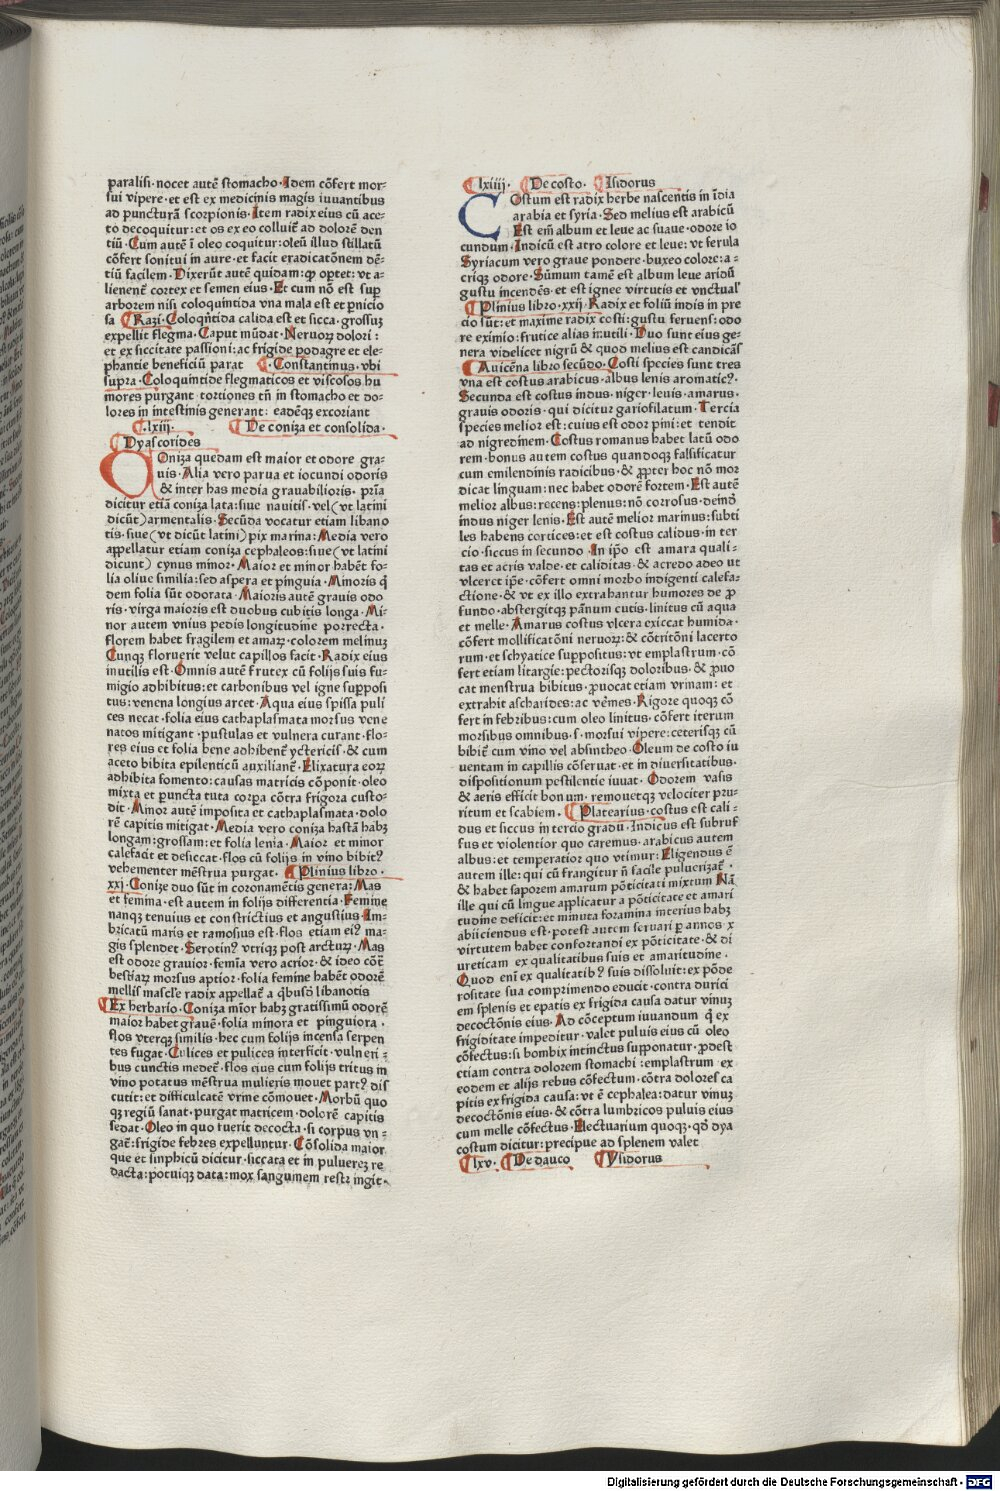 paralisi·nocet autē stomacho·Idem cōfert mor⸗
sui vipere·et est ex medicinis magis iuuantibus
ad puncturā scorpionis·Item radix eius cū ace⸗
to decoquitur:et os ex eo colluiē ad dolorē den
tiū·Cum autē ī oleo coquitur:oleū illud stillatū
cōfert sonitui in aure·et facit eradicatōnem dē⸗
tiū facilem·Dixerūt autē quidam:ꝙ oꝑtet:vt a⸗
lienenē cortex et semen eius·Et cum nō est suꝑ
arborem nisi coloquintida vna mala est et ꝑnicio
sa Razi·Coloqn̄tida calida est et sicca·grossuꝫ
expellit flegma·Caput mūdat·Neruoꝝ dolori:
et ex siccitate passioni:ac frigide podagre et ele⸗
phantie beneficiū parat ·Constantinus·vbi
supra·Coloquintide flegmaticos et viscosos hu
mores purgant·tortiones tn̄ in stomacho et do⸗
lores in intestinis generant: eadēqꝫ excoriant
·lxiij· De coniza et consolida·
Dyascorides
Oniza quedam est maior et odore gra⸗
uis·Alia vero parua et iocundi odoris
& inter has media grauabilioris· pr̄ia
dicitur etiā coniza lata:siue nauitis·vel(vt latini
dicūt)armentalis·Secūda vocatur etiam libano
tis·siue(vt dicūt latini)pix marina:Media vero
appellatur etiam coniza cephaleos:siue(vt latini
dicunt) cynus minor·Maior et minor habēt fo⸗
lia oliue similia:sed aspera et pinguia·Minoris q̄
dem folia sūt odorata·Maioris autē grauis odo
ris·virga maioris est duobus cubitis longa·Mi⸗
nor autem vnius pedis longitudine porrecta·
florem habet fragilem et amaꝝ·colorem melinuꝫ
Cunqꝫ floruerit velut capillos facit·Radix eius
inutilis est·Omnis autē frutex cū folijs suis fu⸗
migio adhibitus:et carbonibus vel igne supposi
tus:venena longius arcet·Aqua eius spissa puli
ces necat·folia eius cathaplasmata morsus vene
natos mitigant·pustulas et vulnera curant·flo⸗
res eius et folia bene adhibenē yctericis·& cum
aceto bibita epilenticū auxilianē·Elixatura eoꝝ
adhibita fomento:causas matricis cōponit·oleo
mixta et ꝑuncta tuta corꝑa cōtra frigora custo⸗
dit·Minor autē imposita et cathaplasmata·dolo
rē capitis mitigat·Media vero coniza hastā habꝫ
longam:grossam:et folia lenia·Maior et minor
calefacit et desiccat·flos cū folijs in vino bibitꝰ
vehementer mēstrua purgat· Plinius libro·
xxj·Conize duo sūt in coronamētis genera:Mas
et femina·est autem in folijs differentia·Femine
nanqꝫ tenuius et constrictius et angustius·Im⸗
bricatū maris et ramosius est·flos etiam eiꝰ ma⸗
gis splendet·Serotinꝰ vtriqꝫ post arctuꝝ·Mas
est odore grauior·femīa vero acrior·& ideo cōt̄
bestiaꝝ morsus aptior·folia femine habēt odorē
mellis mascl'e radix appellat̄ a q̄busō libanotis
Ex herbario·Coniza mīor habꝫ gratissimū odorē
maior habet grauē·folia minora et pinguiora·
flos vterqꝫ similis·hec cum folijs incensa serpen
tes fugat·Culices et pulices interficit·vulneri⸗
bus cunctis medeē·flos eius cum folijs tritus in
vino potatus mēstrua mulieris mouet partꝰ dis
cutit:et difficulcatē vrine cōmouet·Morbū quo
qꝫ regiū sanat·purgat matricem·dolorē capitis
sedat·Oleo in quo fuerit decocta·si corpus vn⸗
gat̄:frigide febres expelluntur·Cōsolida maior
que et sinphicū dicitur·siccata et in puluereꝫ re
dacta:potuiqꝫ data:mox sanguinem restrīgit·
lxiiij· De costo· Isidorus
COstum est radix herbe nascentis in īdia
arabia et syria·Sed melius est arabicū
Est em̄ album et leue ac suaue·odore io
cundum·Indicū est atro colore et leue:vt ferula
Syriacum vero graue pondere·buxeo colore:a⸗
criqꝫ odore·Sūmum tamē est album leue aridū
gustu incendēs·et est ignee virtutis et vnctual'
Plinius libro·xxij·Radix et foliū indis in pre
cio sūt:et maxime radix costi:gustu feruens:odo
re eximio:frutice alias inutili·Duo sunt eius ge⸗
nera videlicet nigrū & quod melius est candicās
Auicēna libro secūdo·Costi species sunt tres
vna est costus arabicus·albus lenis aromaticꝰ·
Secunda est costus indus·niger·leuis·amarus·
grauis odoris·qui dicitur gariofilatum·Tercia
species melior est:cuius est odor pini:et tendit
ad nigredinem·Costus romanus habet latū odo
rem·bonus autem costus quandoqꝫ falsificatur
cum emilendinis radicibus·& ꝓpter hoc nō mor
dicat linguam:nec habet odorē fortem·Est autē
melior albus:recens:plenus:nō corrosus·deinđ
indus niger lenis·Est autē melior marinus:subti
les habens cortices:et est costus calidus·in ter
cio·siccus in secundo·In ip̄o est amara quali⸗
tas et acris valde·et caliditas·& acredo adeo ut
vlceret ip̄e·cōfert omni morbo indigenti calefa⸗
ctione·& vt ex illo extrahantur humores de ꝓ
fundo·abstergitqꝫ pānum cutis·linitus cū aqua
et melle·Amarus costus vlcera exiccat humida·
cōfert mollificatōni neruoꝝ:& cōtritōni lacerto
rum·et schyatice suppositus:vt emplastrum·cō
fert etiam litargie:pectorisqꝫ doloribus·& ꝓuo
cat menstrua bibitus·ꝓuocat etiam vrinam:et
extrahit ascharides:ac vēmes·Rigore quoqꝫ cō
fert in febribus:cum oleo linitus·cōfert iterum
morsibus omnibus·s·morsui vipere:ceterisqꝫ cū
bibiē cum vino vel absintheo·Oleum de costo iu
uentam in capillis cōseruat·et in diuersitatibus·
dispositionum pestilentie iuuat·Odorem vasis
& aeris efficit bonum·remouetqꝫ velociter pru⸗
ritum et scabiem· Platearius·costus est cali⸗
dus et siccus in tercio gradu·Indicus est subruf
fus et violentior quo caremus·arabicus autem
albus:et temperatior quo vtimur:Eligendus ē
autem ille:qui cū frangitur n̄ facile pulverizat̄·
& habet saporem amarum pōticitati mixtum Nā
ille qui cū lingue applicatur a pōticitate et amari
tudine deficit:et minuta foramina interius habꝫ
abiiciendus est·potest autem seruari ꝑ annos x
virtutem habet confortandi ex pōticitate·& di
ureticam ex qualitatibus suis et amaritudine·
Quod enī ex qualitatibꝰ suis dissoluit:ex pōde
rositate sua comprimendo educit·contra durici
em splenis et epatis ex frigida causa datur vinuꝫ
decoctōnis eius·Ad cōceptum iuuandum q̄ ex
frigiditate impeditur·valet puluis eius cū oleo
cōfectus:si bombix intinctus supponatur·ꝓdest
etiam contra dolorem stomachi:emplastrum ex
eodem et alijs rebus cōfectum·cōtra dolores ca
pitis ex frigida causa:vt ē cephalea:datur vinuꝫ
decoctōnis eius·& cōtra lumbricos puluis eius
cum melle cōfectus·Electuarium quoqꝫ·qđ dya
costum dicitur:precipue ad splenem valet
lxv· De dauco Ysidorus
Digitalisierung gefördert durch die Deutsche Forschungsgemeinschaft · DFG